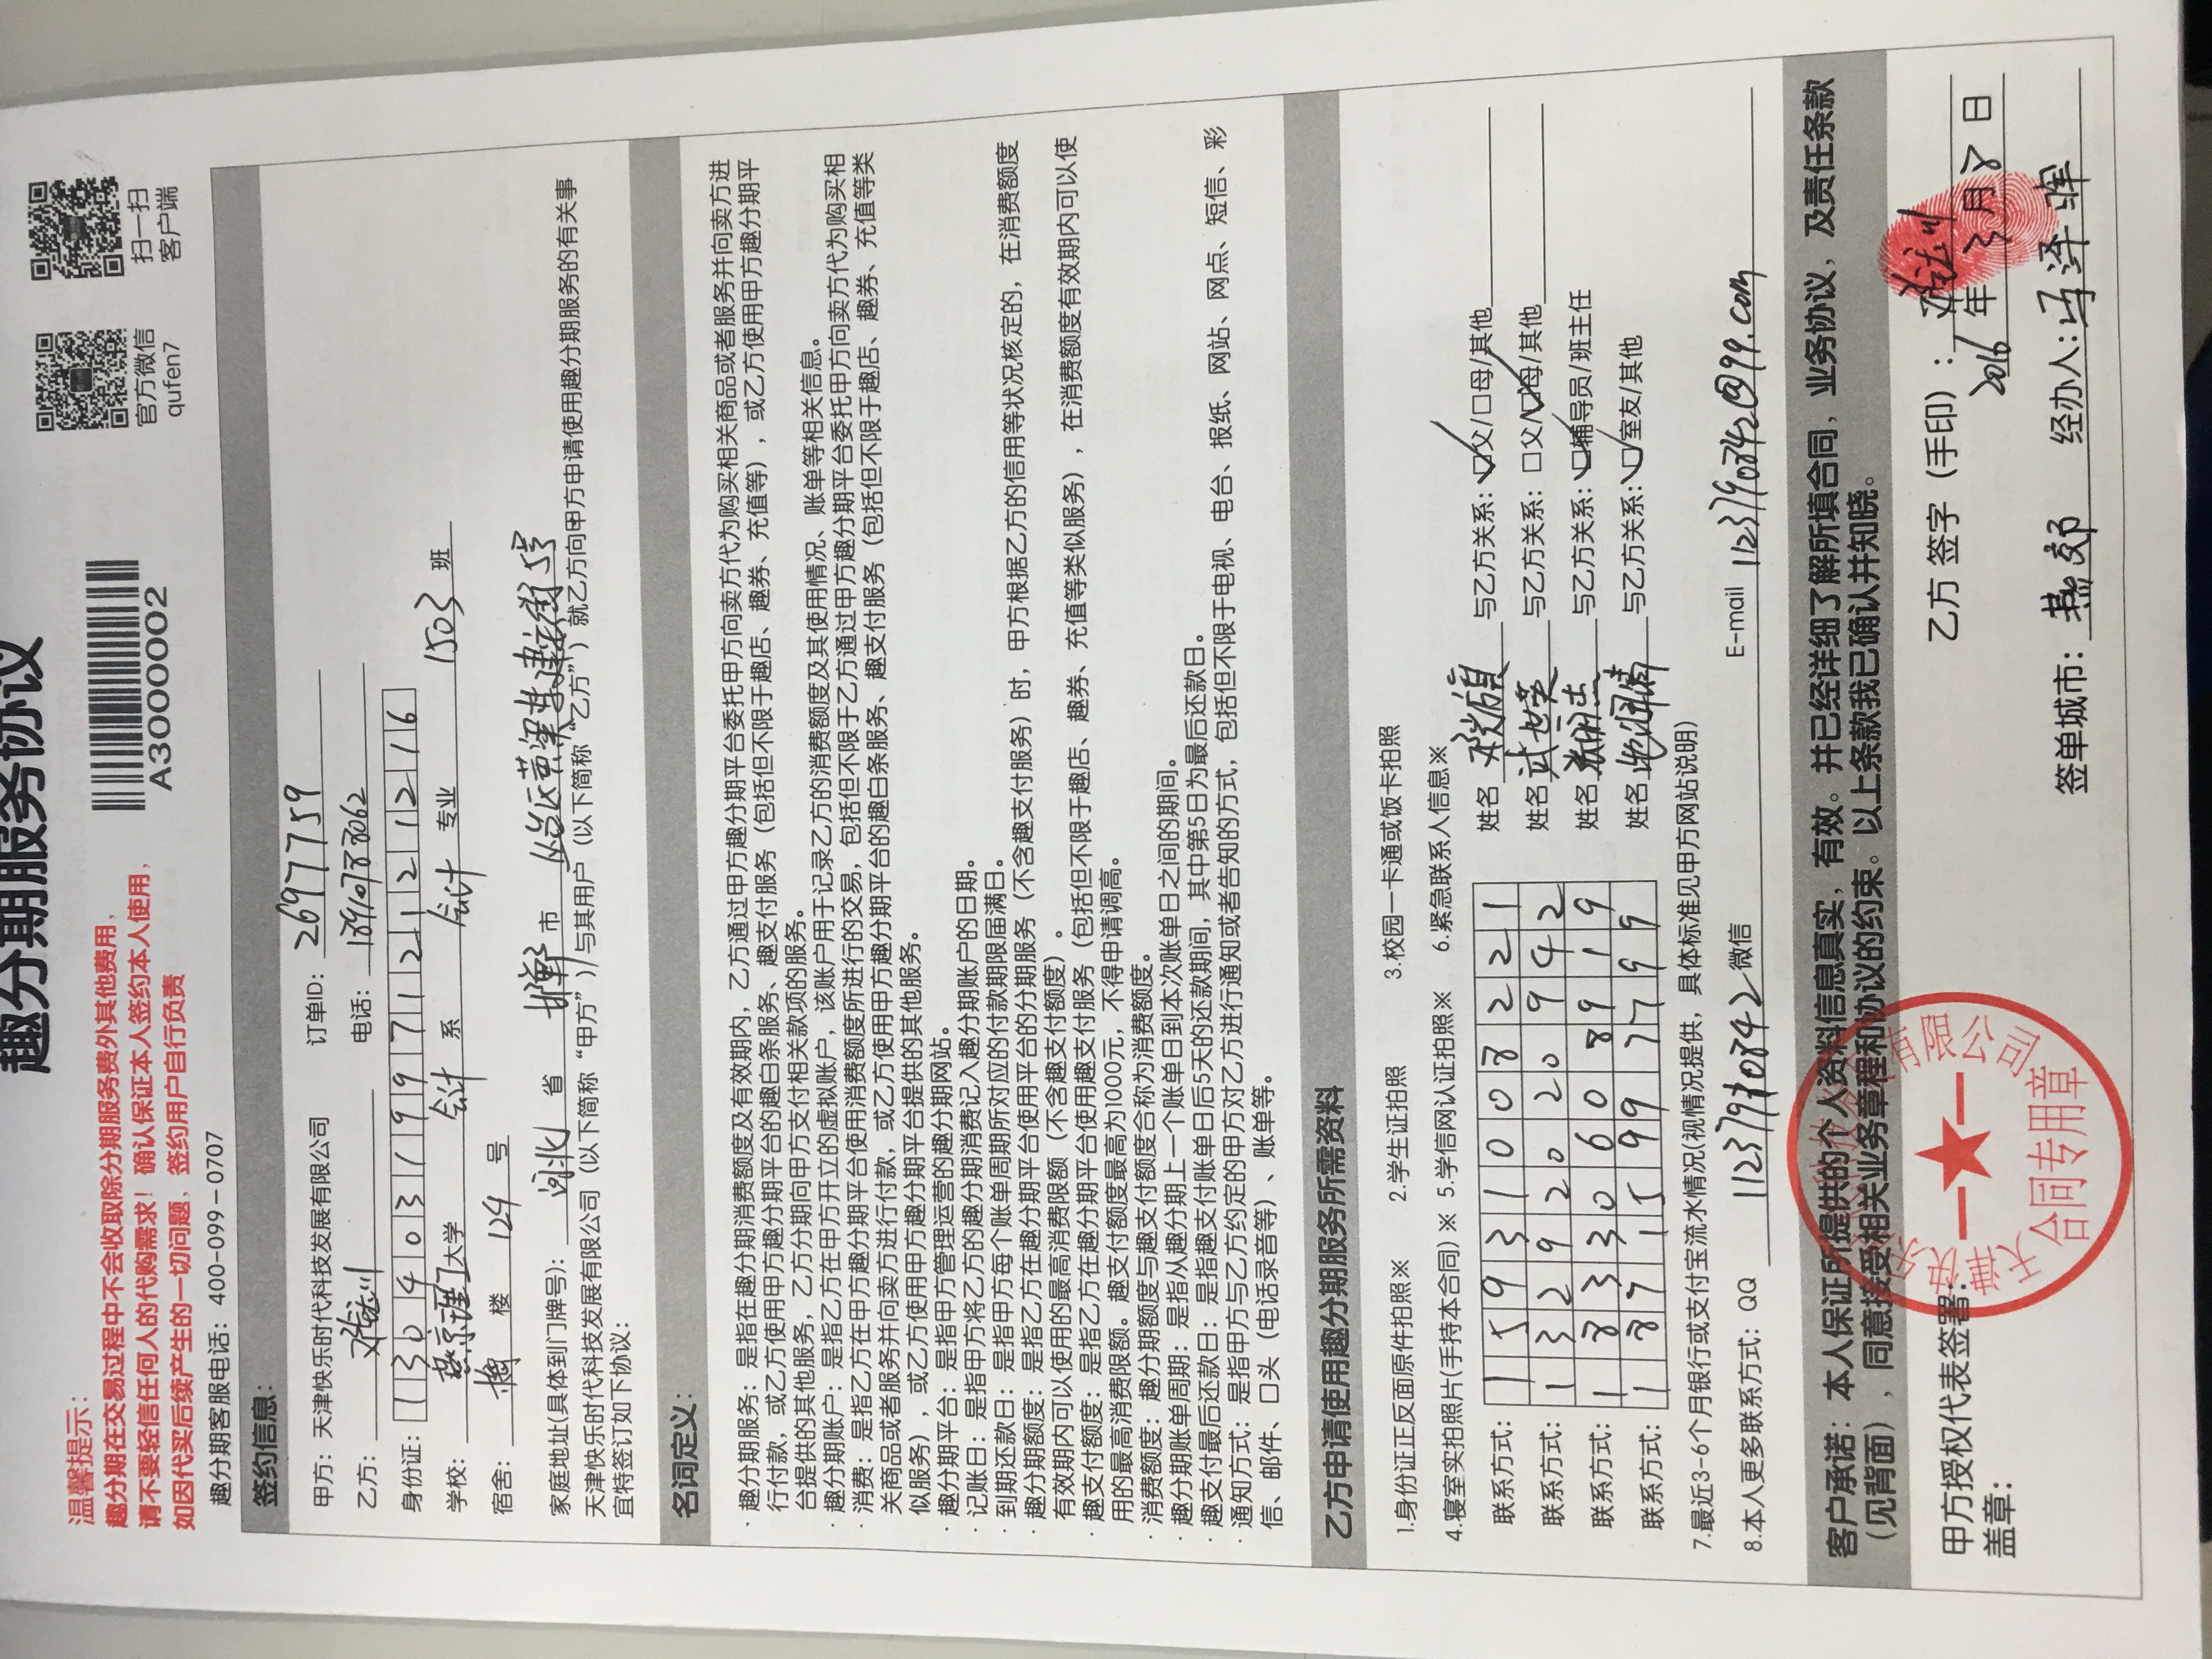 趣分期服务协议
温馨提示：
趣分期在交易过程中不会收取除分期服务费外其他费用，
请不要轻信任何人的代购需求！确认保证本人签约本人使用，
如因代买后续产生的一切问题，签约用户自行负责
A3000002
官方微信
qufen7
扫一扫
客户端
趣分期客服电话：400-099-0707
签约信息：
甲方：天津快乐时代科技发展有限公司 订单ID：2697759
乙方： 电话：18910788062
身份证：130403199712121216
学校：燕京理工大学 会计 系 会计 专业 1503 班
宿舍： 楼 124 号
家庭地址(具体到门牌号)：河北 省 邯郸 市 丛台区黄粱梦建设街5号
天津快乐时代科技发展有限公司（以下简称“甲方”）与其用户（以下简称“乙方”）就乙方向甲方申请使用趣分期服务的有关事
宜特签订如下协议：
名词定义：
· 趣分期服务：是指在趣分期消费额度及有效期内，乙方通过甲方趣分期平台委托甲方向卖方代为购买相关商品或者服务并向卖方进
行付款，或乙方使用甲方趣分期平台的趣白条服务、趣支付服务（包括但不限于趣店、趣券、充值等），或乙方使用甲方趣分期平
台提供的其他服务，乙方分期向甲方支付相关款项的服务。
· 趣分期账户：是指乙方在甲方开立的虚拟账户，该账户用于记录乙方的消费额度及其使用情况、账单等相关信息。
· 消费：是指乙方在甲方趣分期平台使用消费额度所进行的交易，包括但不限于乙方通过甲方趣分期平台委托甲方向卖方代为购买相
关商品或者服务并向卖方进行付款，或乙方使用甲方趣分期平台的趣白条服务、趣支付服务（包括但不限于趣店、趣券、充值等类
似服务），或乙方使用甲方趣分期平台提供的其他服务。
· 趣分期平台：是指甲方管理运营的趣分期网站。
· 记账日：是指甲方将乙方的趣分期消费记入趣分期账户的日期。
· 到期还款日：是指甲方每个账单周期所对应的付款期限届满日。
· 趣分期额度：是指乙方在趣分期平台使用平台的分期服务（不含趣支付服务）时，甲方根据乙方的信用等状况核定的，在消费额度
有效期内可以使用的最高消费限额（不含趣支付额度）。
· 趣支付额度：是指乙方在趣分期平台使用趣支付服务（包括但不限于趣店、趣券、充值等类似服务），在消费额度有效期内可以使
用的最高消费限额。趣支付额度最高为1000元，不得申请调高。
· 消费额度：趣分期额度与趣支付额度合称为消费额度。
· 趣分期账单周期：是指从趣分期上一个账单日到本次账单日之间的期间。
· 趣支付最后还款日：是指趣支付账单日后5天的还款期间，其中第5日为最后还款日。
· 通知方式：是指甲方与乙方约定的甲方对乙方进行通知或者告知的方式，包括但不限于电视、电台、报纸、网站、网点、短信、彩
信、邮件、口头（电话录音等）、账单等。
乙方申请使用趣分期服务所需资料
1.身份证正反面原件拍照※ 2.学生证拍照 3.校园一卡通或饭卡拍照
4.寝室实拍照片(手持本合同)※ 5.学信网认证拍照※ 6.紧急联系人信息※
联系方式：15931008221 姓名 与乙方关系：☑父/□母/其他
联系方式：13292020942 姓名 武世英 与乙方关系：□父/☑母/其他
联系方式：18330608919 姓名 张丽杰 与乙方关系：☑辅导员/班主任
联系方式：18715997799 姓名 与乙方关系：☑室友/其他
7.最近3-6个月银行或支付宝流水情况(视情况提供，具体标准见甲方网站说明)
8.本人更多联系方式：QQ 1123790842 微信 E-mail 1123790842@99.com
客户承诺：本人保证所提供的个人资料信息真实，有效。并已经详细了解所填合同，业务协议，及责任条款
（见背面），同意接受相关业务章程和协议的约束。以上条款我已确认并知晓。
甲方授权代表签署：
盖章：
天津快乐时代科技发展有限公司
合同专用章
乙方 签字（手印）：
2016 年 3 月 8 日
签单城市：燕郊 经办人：马泽晖